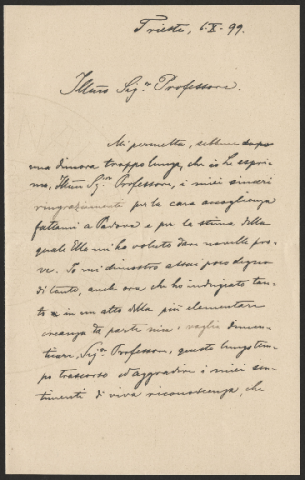 Trieste, 6.X. 99.
Illmo Sigr Professore.
Mi permetta, sebbene dopo
una dimora troppo lunga, che io Le espri-
ma, Illmo Sigr Professore, i miei sinceri
ringraziamenti per la cara accoglienza
fattami a Padova e per la stima, della
quale Ella mi ha voluto dare novelle pro-
ve. Io mi dimostro assai poco degno
di tanto, anche ora che ho indugiato tan-
to in un atto della più elementare
creanza da parte mia; voglia dimen-
ticare, Sigr Professore, questo lungo tem-
po trascorso ed aggradire i miei sen-
timenti di viva riconoscenza, che